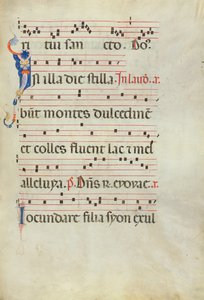 ri tui san cto. Do.
In illa die stilla. In laud. a.
bunt montes dulcedinē
et colles fluent lac ⁊ mel
alleluya. p̄. Dn̄s regnav. a.
Iocundare filia syon